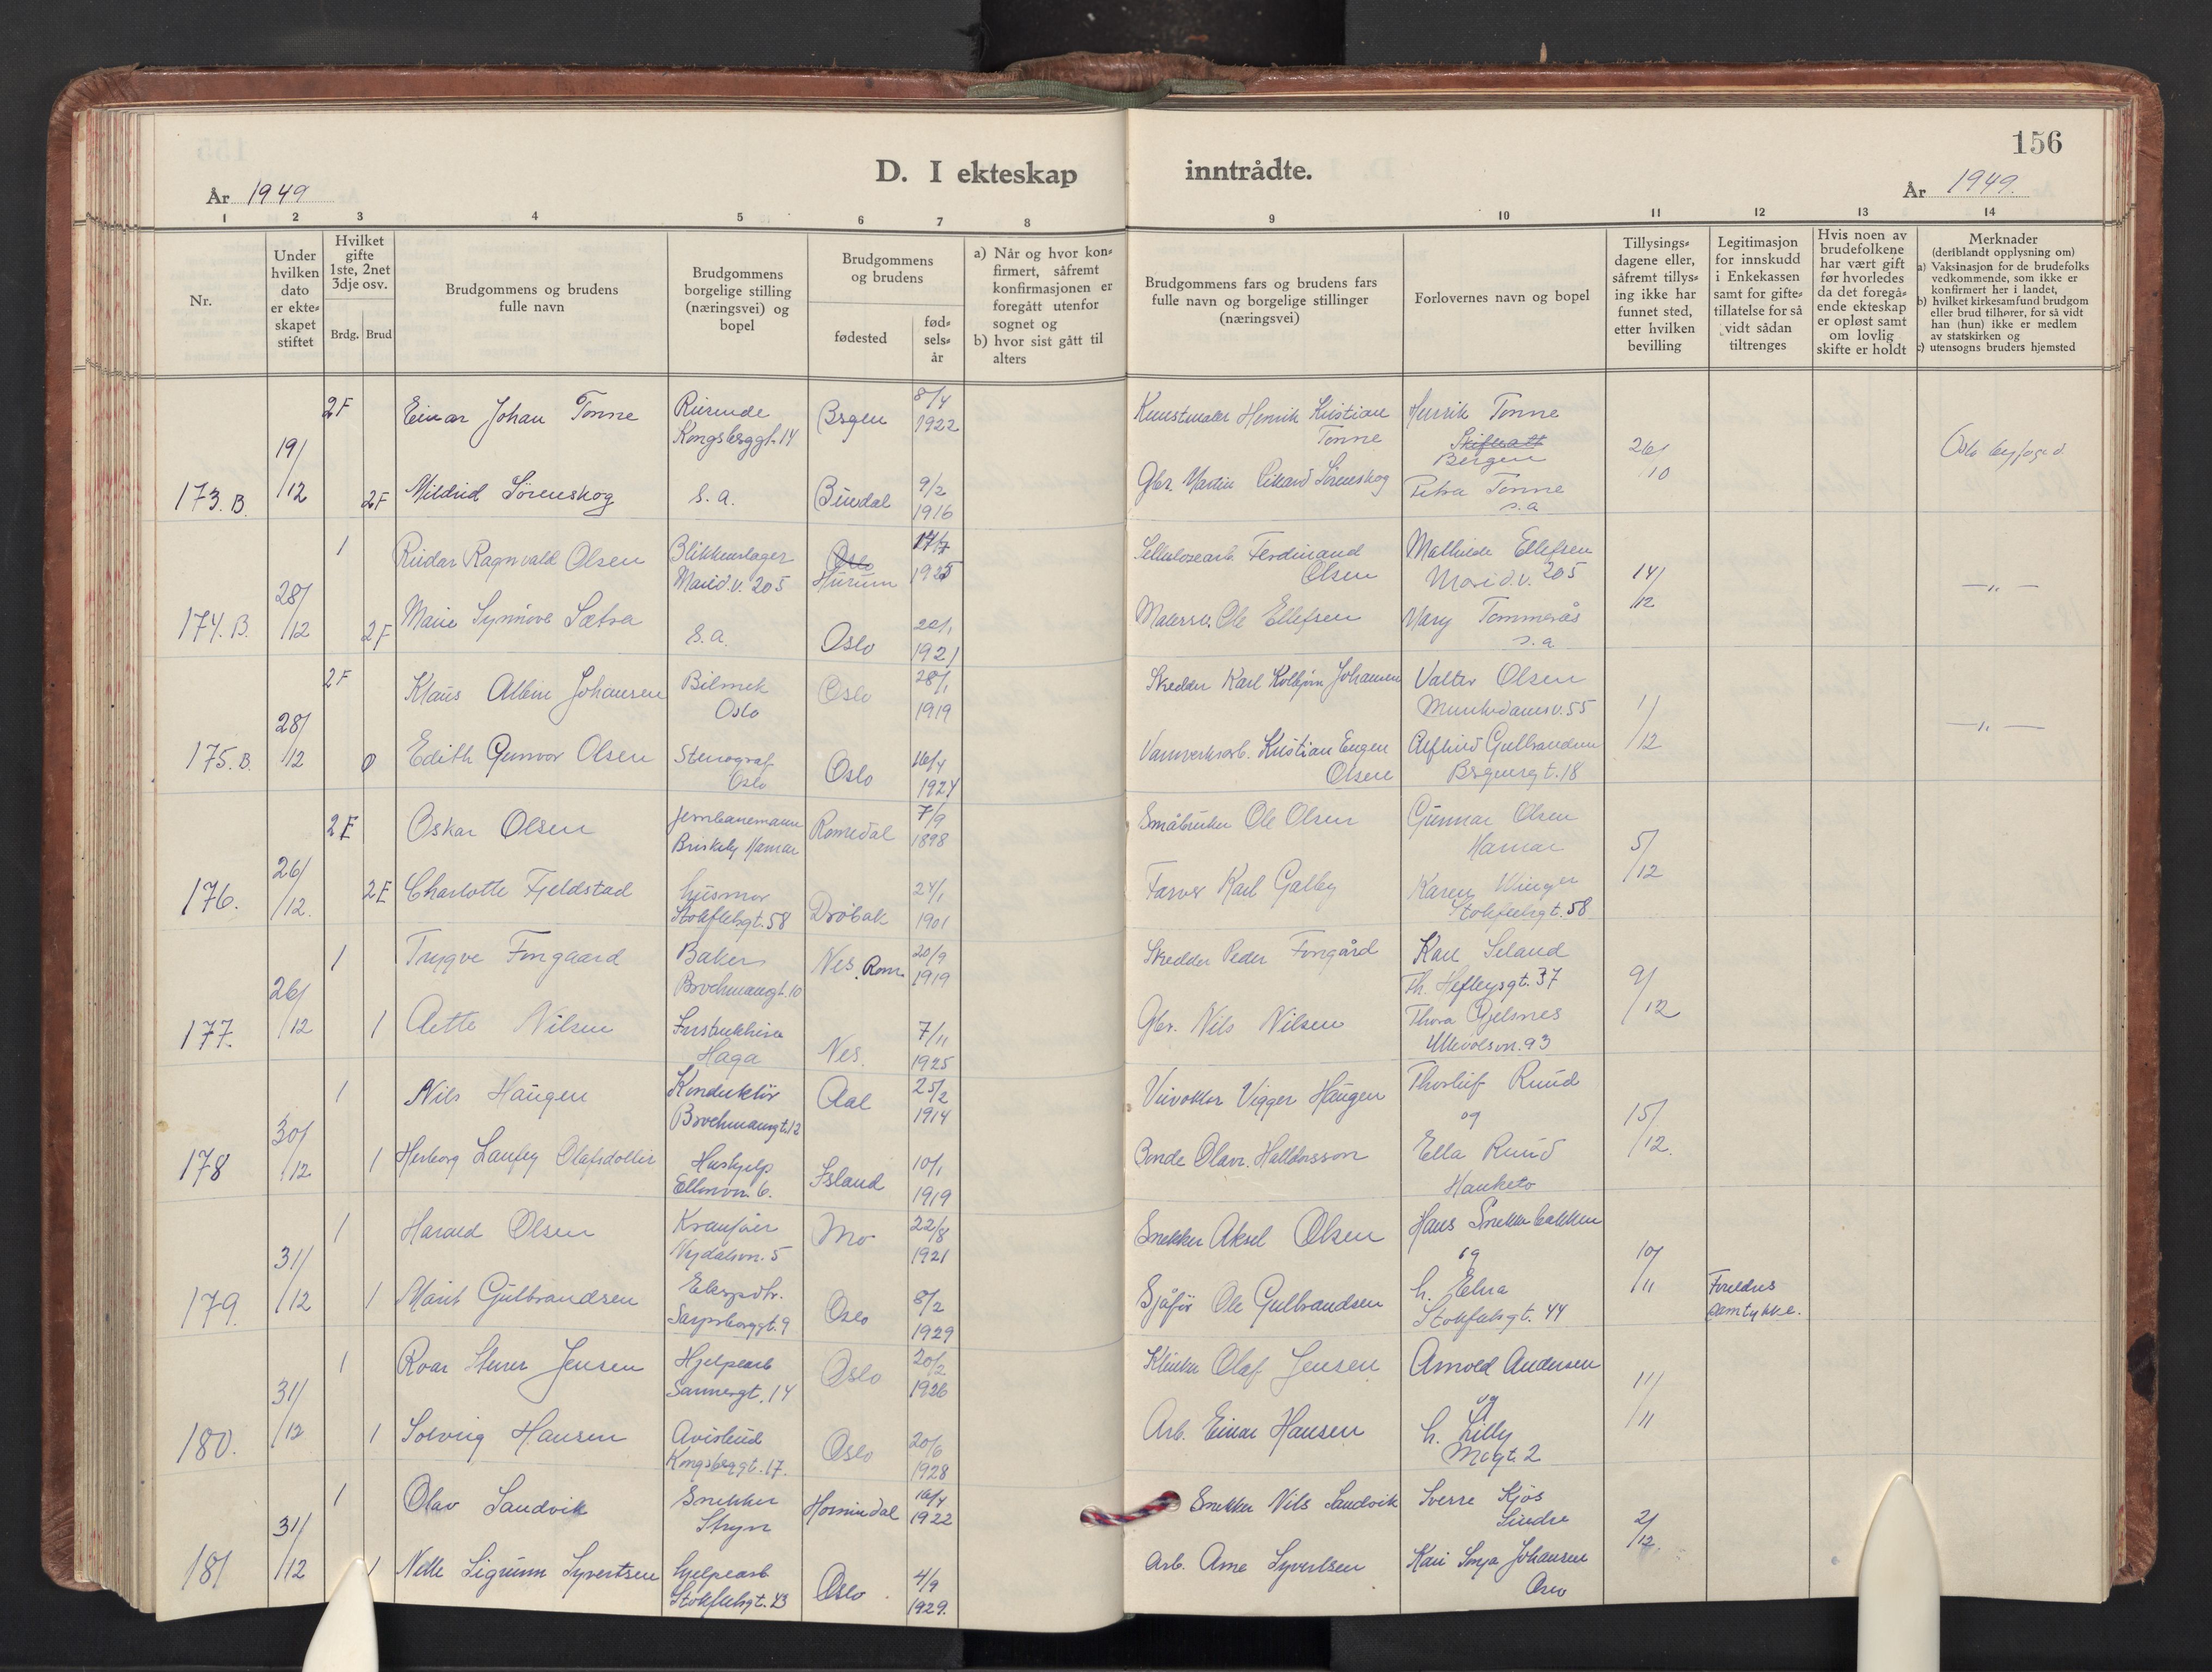 156
D. I ekteskap inntrådte.
År 1949
År 1949.
1 2 3 4 5 6 7 8 9 10 11 12 13 14
Nr.
Under hvilken dato er ekteskapet stiftet
Hvilket gifte 1ste, 2net 3dje osv.
Brdg. Brud
Brudgommens og brudens fulle navn
Brudgommens borgelige stilling (næringsvei) og bopel
Brudgommens og brudens
fødested
fød-sels-år
a) Når og hvor kon-firmert, såfremt konfirmasjonen er foregått utenfor sognet og
b) hvor sist gått til alters
Brudgommens fars og brudens fars fulle navn og borgelige stillinger (næringsvei)
Forlovernes navn og bopel
Tillysings-dagene eller, såfremt tillys-ing ikke har funnet sted, etter hvilken bevilling
Legitimasjon for innskudd i Enkekassen samt for gifte-tillatelse for så vidt sådan tiltrenges
Hvis noen av brudefolkene har vært gift før hvorledes da det foregå-ende ekteskap er opløst samt om lovlig skifte er holdt
Merknader
(deriblandt opplysning om)
a) Vaksinasjon for de brudefolks vedkommende, som ikke er konfirmert her i landet,
b) hvilket kirkesamfund brudgom eller brud tilhører, for så vidt han (hun) ikke er medlem av statskirken og
c) utensogns bruders hjemsted
2F Einar Johan Tonne Reisende Kongsberggt. 14 Bergen 8/4 1922 Kunstmaler Henrik Kristian Tonne Henrik Tonne Bergen
173.B. 19/12 2F Mildrid Sørenskog s.a. Bindal 9/2 1916 Gbr. Martin Edvard Sørenskog Petra Tonne s.a. 26/10 Oslo byfogd
1 Reidar Ragnvald Olsen Blikkenslager Marid.v. 205 Oslo Hurum 17/7 1925 Cellulosearb. Ferdinand Olsen Mathilde Ellefsen Marid.v. 205
174.B. 28/12 2F Marie Synnøve Sætra s.a. Oslo 20/1 1921 Malersv. Ole Ellefsen Mary Tommerås s.a 14/12 — " —
2F Klaus Albin Johansen Bilmek Oslo Oslo 28/1 1919 Skredder Karl Kolbjørn Johansen Valter Olsen Munkedamsv. 55
175.B. 28/12 0 Edith Gunvor Olsen Stenograf Oslo Oslo 16/4 1924 Vannverksarb. Kristian Eugen Olsen Alfhild Gulbrandsen Bergensgt. 18 1/12 — " —
2F Oskar Olsen Jernbanemann Briskeby Hamar Romedal 7/9 1898 Småbruker Ole Olsen Gunnar Olsen Hamar
176. 26/12. 2E Charlotte Fjeldstad husmor Stokflethsgt. 58 Drøbak 24/1 1901 Farver Karl Galby Karen Winger Stokflethsgt. 58 5/12
1 Trygve Fongaard Baker Brochmannsgt. 10 Nes. Rom. 20/9 1919 Skredder Peder Fongård Karl Seland Th. Heftyesgt. 37
177. 26/12 1 Nilsen Haga Nes. 7/11 1925 Gbr. Nils Nilsen Thora Gjelsnes Ullevålsvn. 93 9/12
1 Nils Haugen Konduktør Brochmannsgt. 12 Aal 25/2 1914 Veivokter Vigger Haugen Thorleif Ruud og
178 30/12 1 Herborg Laufey Olafsdottir Hushjelp 6. Island 10/1 1919 Bonde Olavr. Halldorsson Ella Ruud Hauketo 15/12.
1 Harald Olsen Kranfører Nydalsvn. 5 Mo 22/8 1921 Snekker Aksel Olsen Hans Snekkebakken og
179. 31/12 1 Marit Gulbrandsen Eksp.dtr. Sarpsborggt. 9 Oslo 8/2 1929 Sjåfør Ole Gulbrandsen h. Elna Stokflethsgt. 44 10/11 Foreldres samtykke.
1 Roar Jensen Hjelpearb Sannergt. 14 Oslo 20/2 1926 Olaf Jensen Arnold Andersen og
180. 31/12 1 Solveig Hansen Avisbud Kongsberggt. 17. Oslo 20/6 1928 Arb. Einar Hansen h. Lilly Mogt. 2 11/11
1 Olav Sandvik Snekker Stryn Hornindal 16/4 1922 Snekker Nils Sandvik Sverre Kjøs
181 31/12 1 Nelle Sigrunn Syvertsen hjelpearb Stokflethsgt. 43 Oslo 4/9 1929. Arb. Arne Syvertsen Kari Sonja Johansen Oslo 2/12.